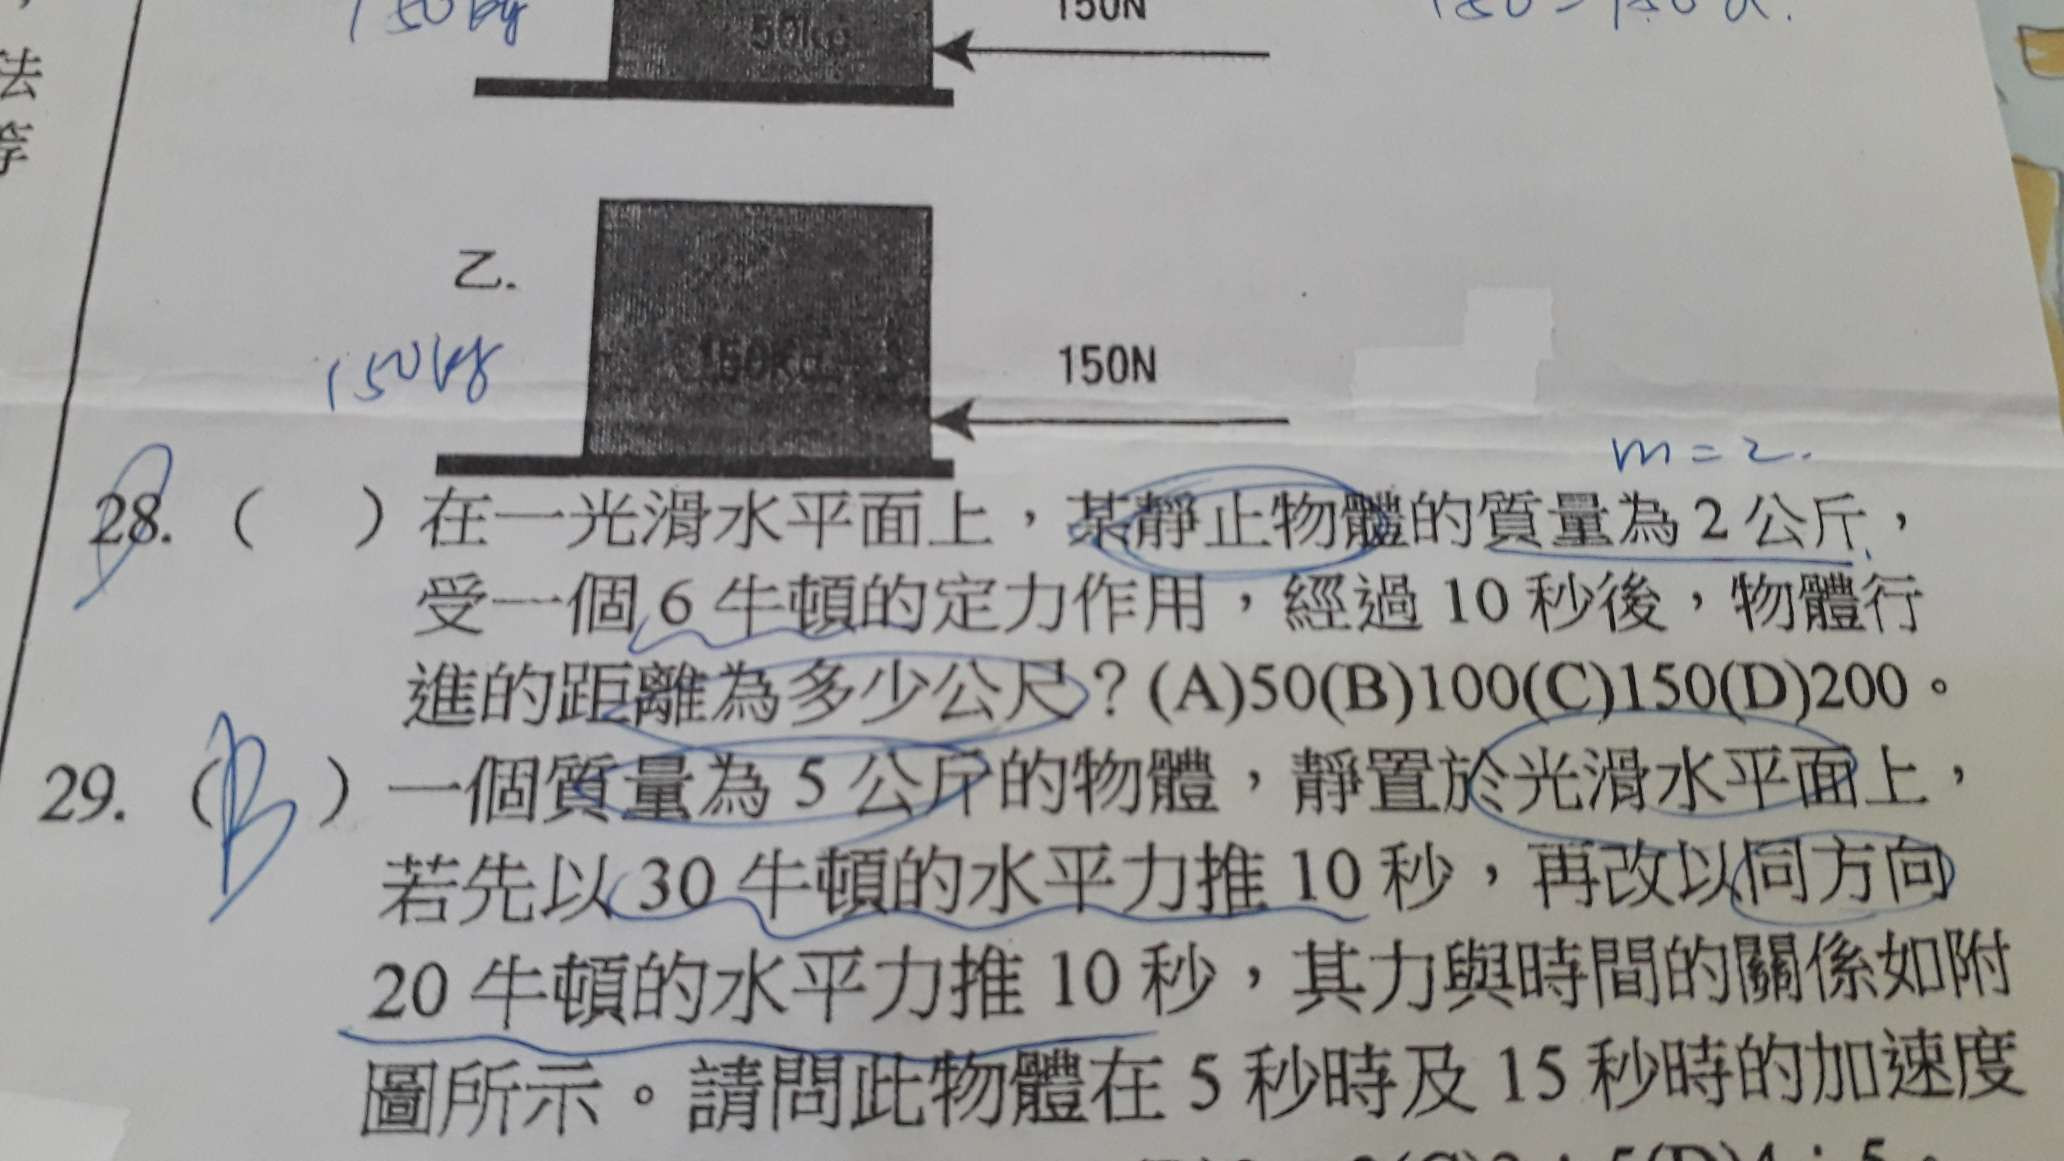 法
150kg
50kg
150N
150=150a.
乙.
150kg
150Kg
150N
m=2.
28. (　) 在一光滑水平面上，某靜止物體的質量為 2 公斤，
受一個 6 牛頓的定力作用，經過 10 秒後，物體行
進的距離為多少公尺？(A)50(B)100(C)150(D)200。
29. (B) 一個質量為 5 公斤的物體，靜置於光滑水平面上，
若先以 30 牛頓的水平力推 10 秒，再改以同方向
20 牛頓的水平力推 10 秒，其力與時間的關係如附
圖所示。請問此物體在 5 秒時及 15 秒時的加速度